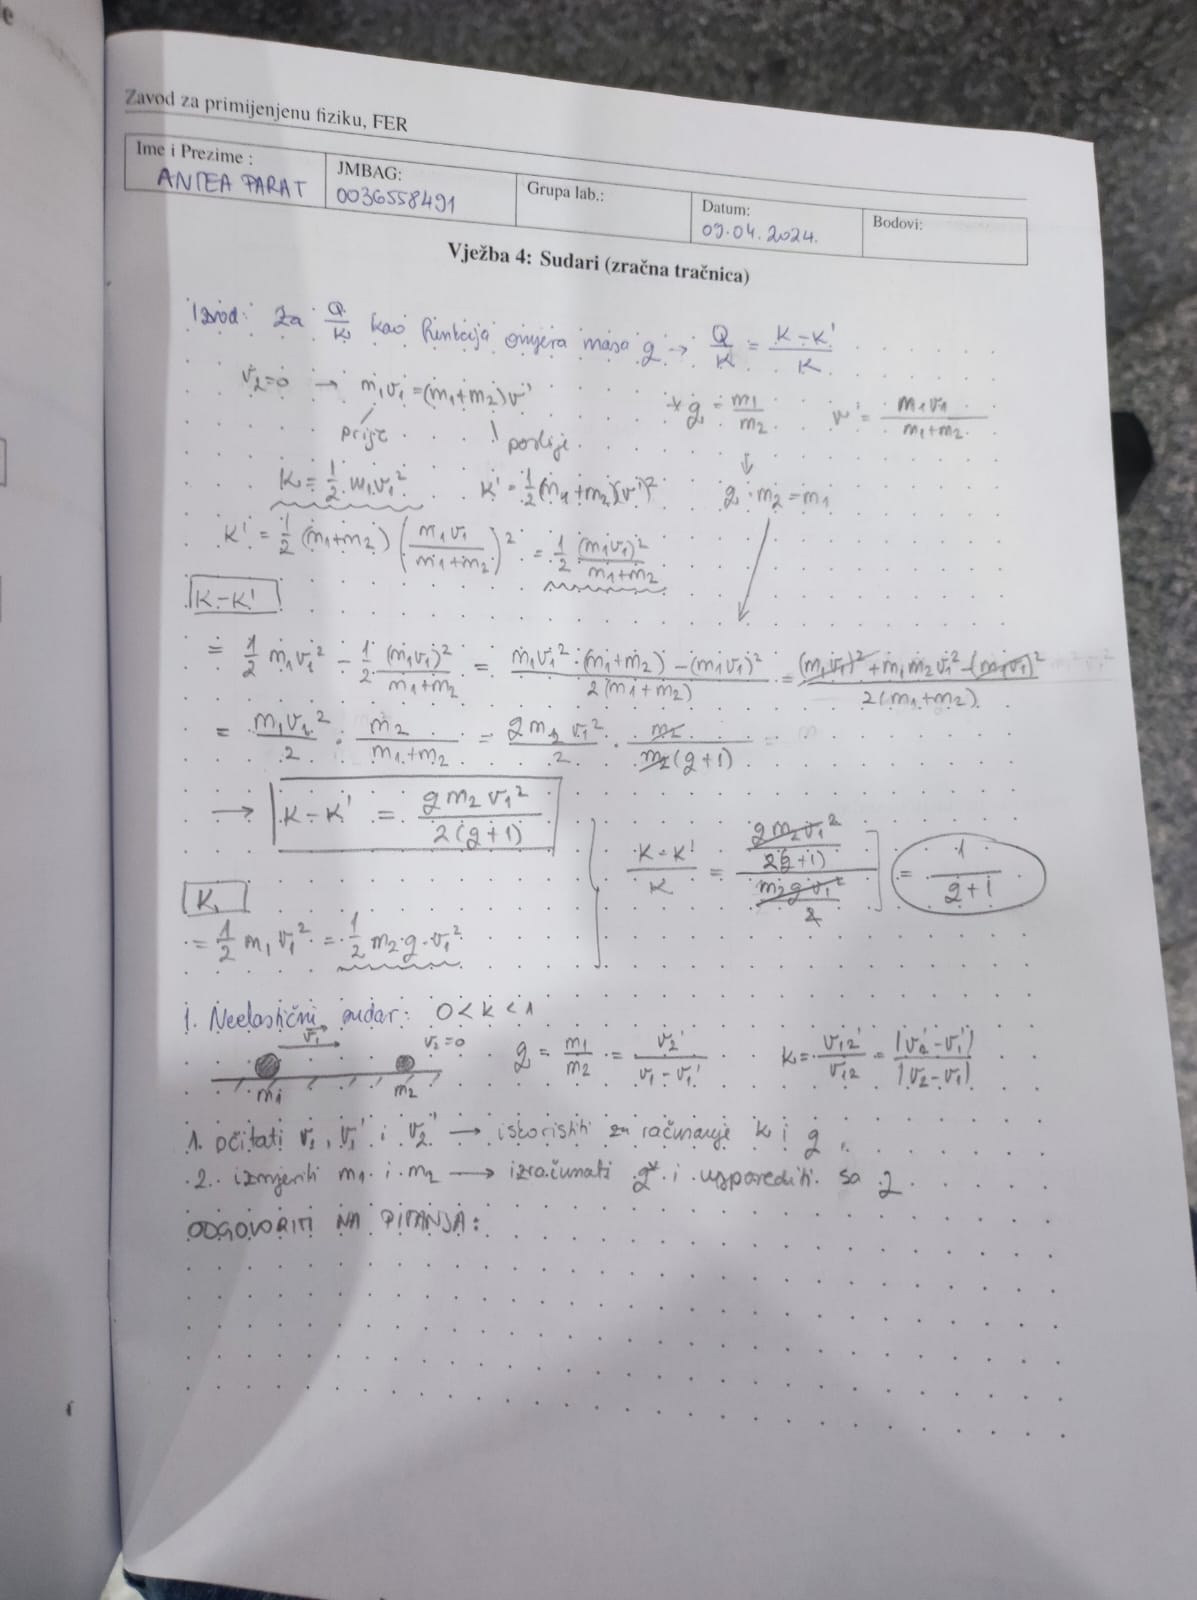 Zavod za primijenjenu fiziku, FER
Ime i Prezime :
ANTEA PARAT
JMBAG:
0036558491
Grupa lab.:
Datum:
09.04.2024.
Bodovi:
Vježba 4: Sudari (zračna tračnica)
Izvod: Za Q/K kao funkcija omjera masa g → Q/K = (K-K')/K
v₂=0 → m₁v₁=(m₁+m₂)v' * g = m₁/m₂ v' = m₁v₁/(m₁+m₂)
prije poslije
K = 1/2 m₁v₁² K' = 1/2 (m₁+m₂)(v')² g·m₂=m₁
K' = 1/2 (m₁+m₂) (m₁v₁/(m₁+m₂))² = 1/2 (m₁v₁)²/(m₁+m₂)
K-K'
= 1/2 m₁v₁² - 1/2 (m₁v₁)²/(m₁+m₂) = (m₁v₁²·(m₁+m₂)-(m₁v₁)²)/(2(m₁+m₂)) = ((m₁v₁)²+m₁m₂v₁²-(m₁v₁)²)/(2(m₁+m₂))
= m₁v₁²/2 · m₂/(m₁+m₂) = g m₂ v₁²/2 · m₂/(m₂(g+1))
→ K-K' = g m₂ v₁²/(2(g+1))
(K-K')/K = (g m₂ v₁²/(2(g+1)))/(m₂ g v₁²/2) = 1/(g+1)
K₁
= 1/2 m₁v₁² = 1/2 m₂·g·v₁²
1. Neelastični sudar: 0<k<1
v₁ v₂=0 g = m₁/m₂ = v₂'/(v₁-v₁') k = v₁₂'/v₁₂ = |v₂'-v₁'|/|v₂-v₁|
m₁ m₂
1. očitati v₂, v₁' i v₂' → iskoristiti za računanje k i g
2. izmjeriti m₁ i m₂ → izračunati g* i usporediti sa g
ODGOVORITI NA PITANJA: